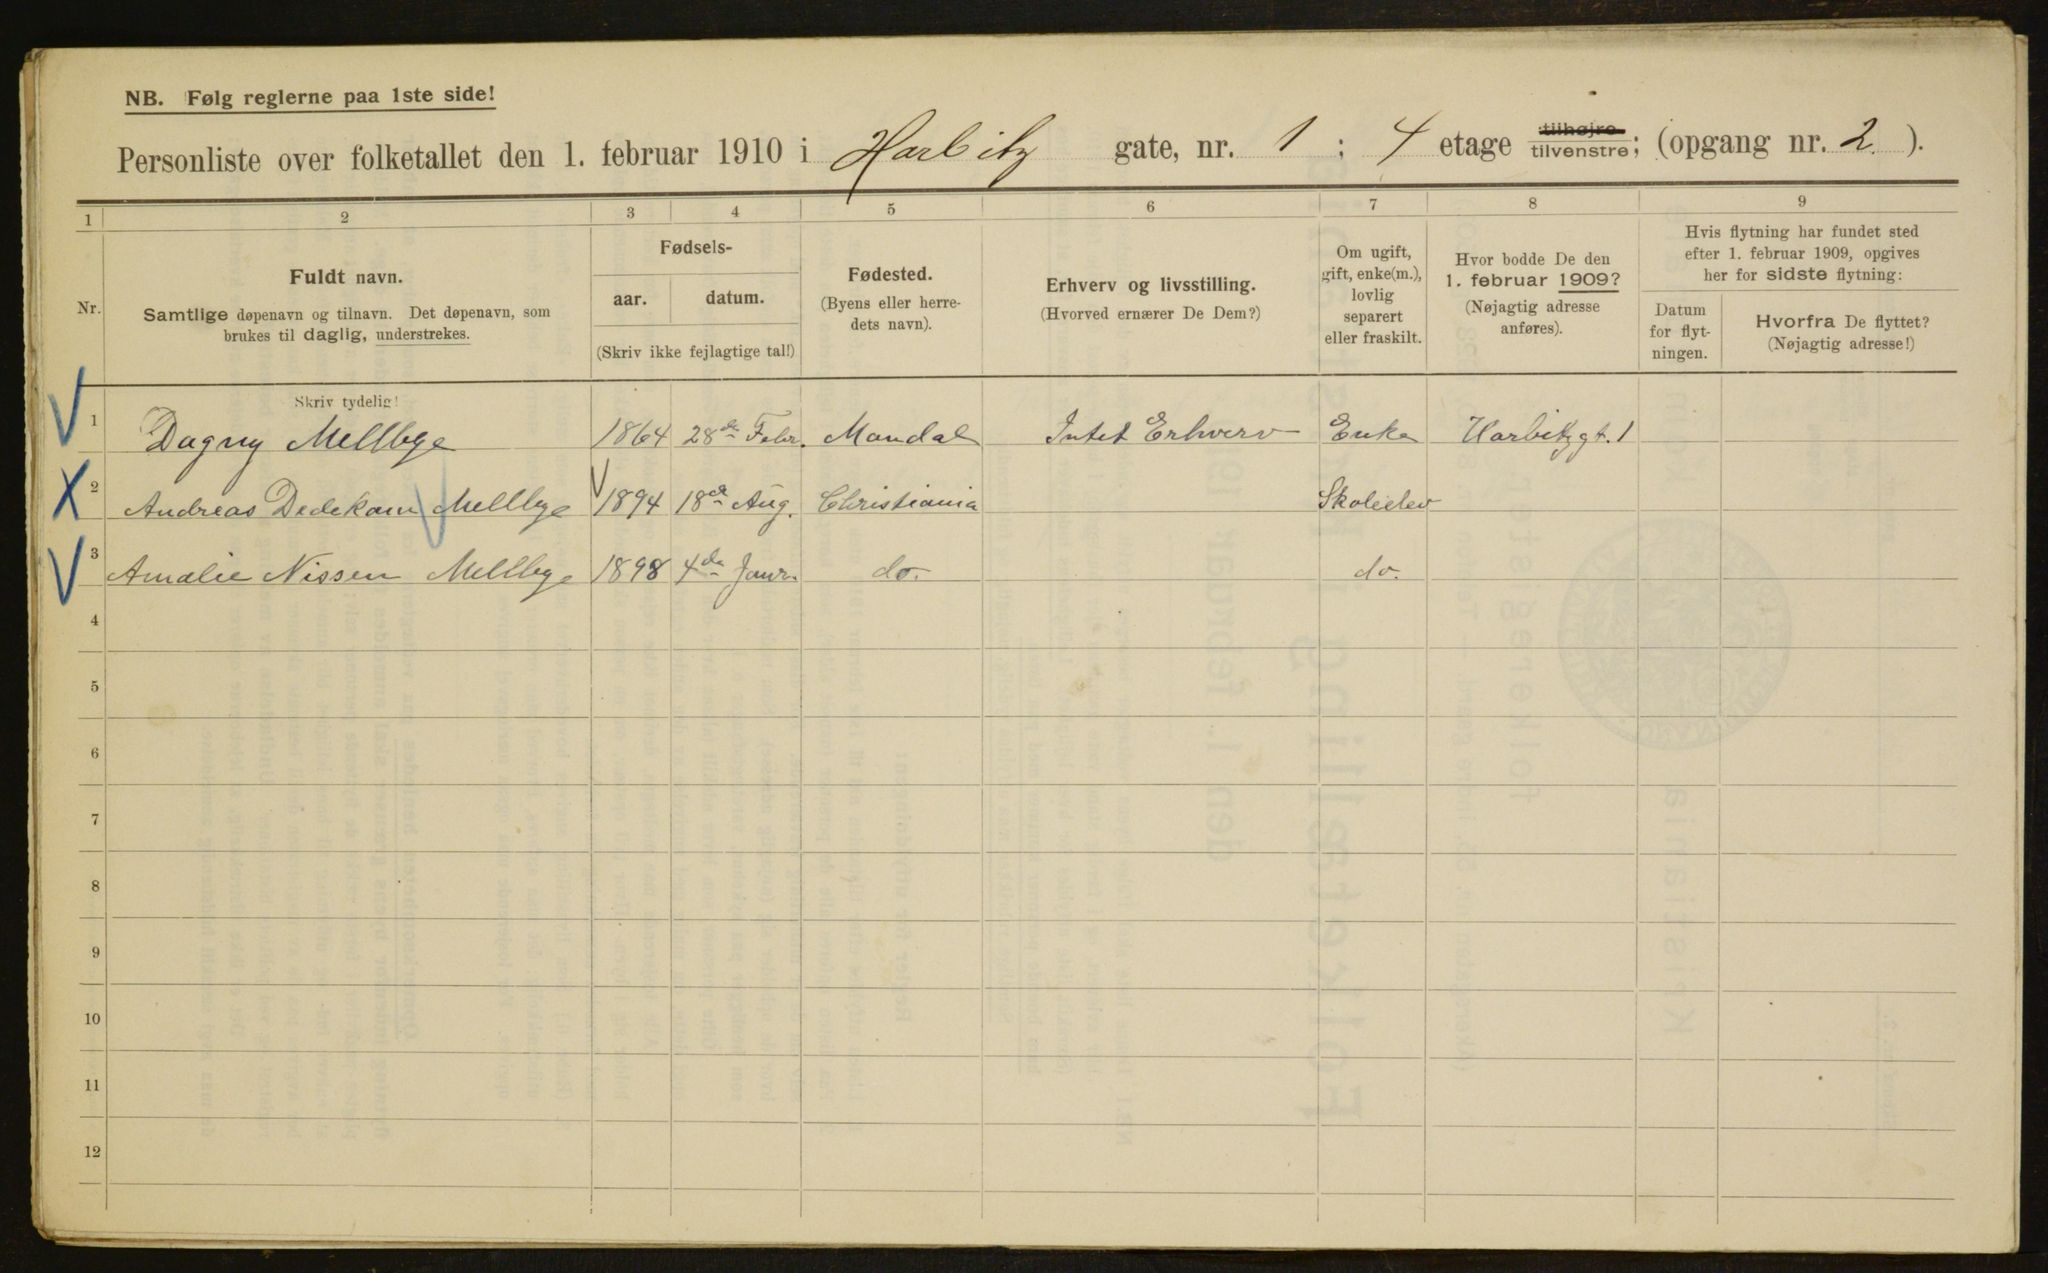 NB. Følg reglerne paa 1ste side!
Personliste over folketallet den 1. februar 1910 i Harbitz gate, nr. 1 ; 4 etage tilhøjre tilvenstre; (opgang nr. 2.).
1 2 3 4 5 6 7 8 9
Nr.
Fuldt navn.
Samtlige døpenavn og tilnavn. Det døpenavn, som
brukes til daglig, understrekes.
Fødsels-
aar. datum.
(Skriv ikke fejlagtige tal!)
Fødested.
(Byens eller herre-
dets navn).
Erhverv og livsstilling.
(Hvorved ernærer De Dem?)
Om ugift,
gift, enke(m.),
lovlig
separert
eller fraskilt.
Hvor bodde De den
1. februar 1909?
(Nøjagtig adresse
anføres).
Hvis flytning har fundet sted
efter 1. februar 1909, opgives
her for sidste flytning:
Datum
for flyt-
ningen.
Hvorfra De flyttet?
(Nøjagtig adresse!)
Skriv tydelig!
1 Dagny Mellbye 1864 28de Febr. Mandal Intet Erhverv Enke Harbitzgt. 1
2 Andreas Dedekam Mellbye 1894 18de Aug. Christiania Skoleelev
3 Amalie Nissen Mellbye 1898 4de Janr. do. do.
4
5
6
7
8
9
10
11
12